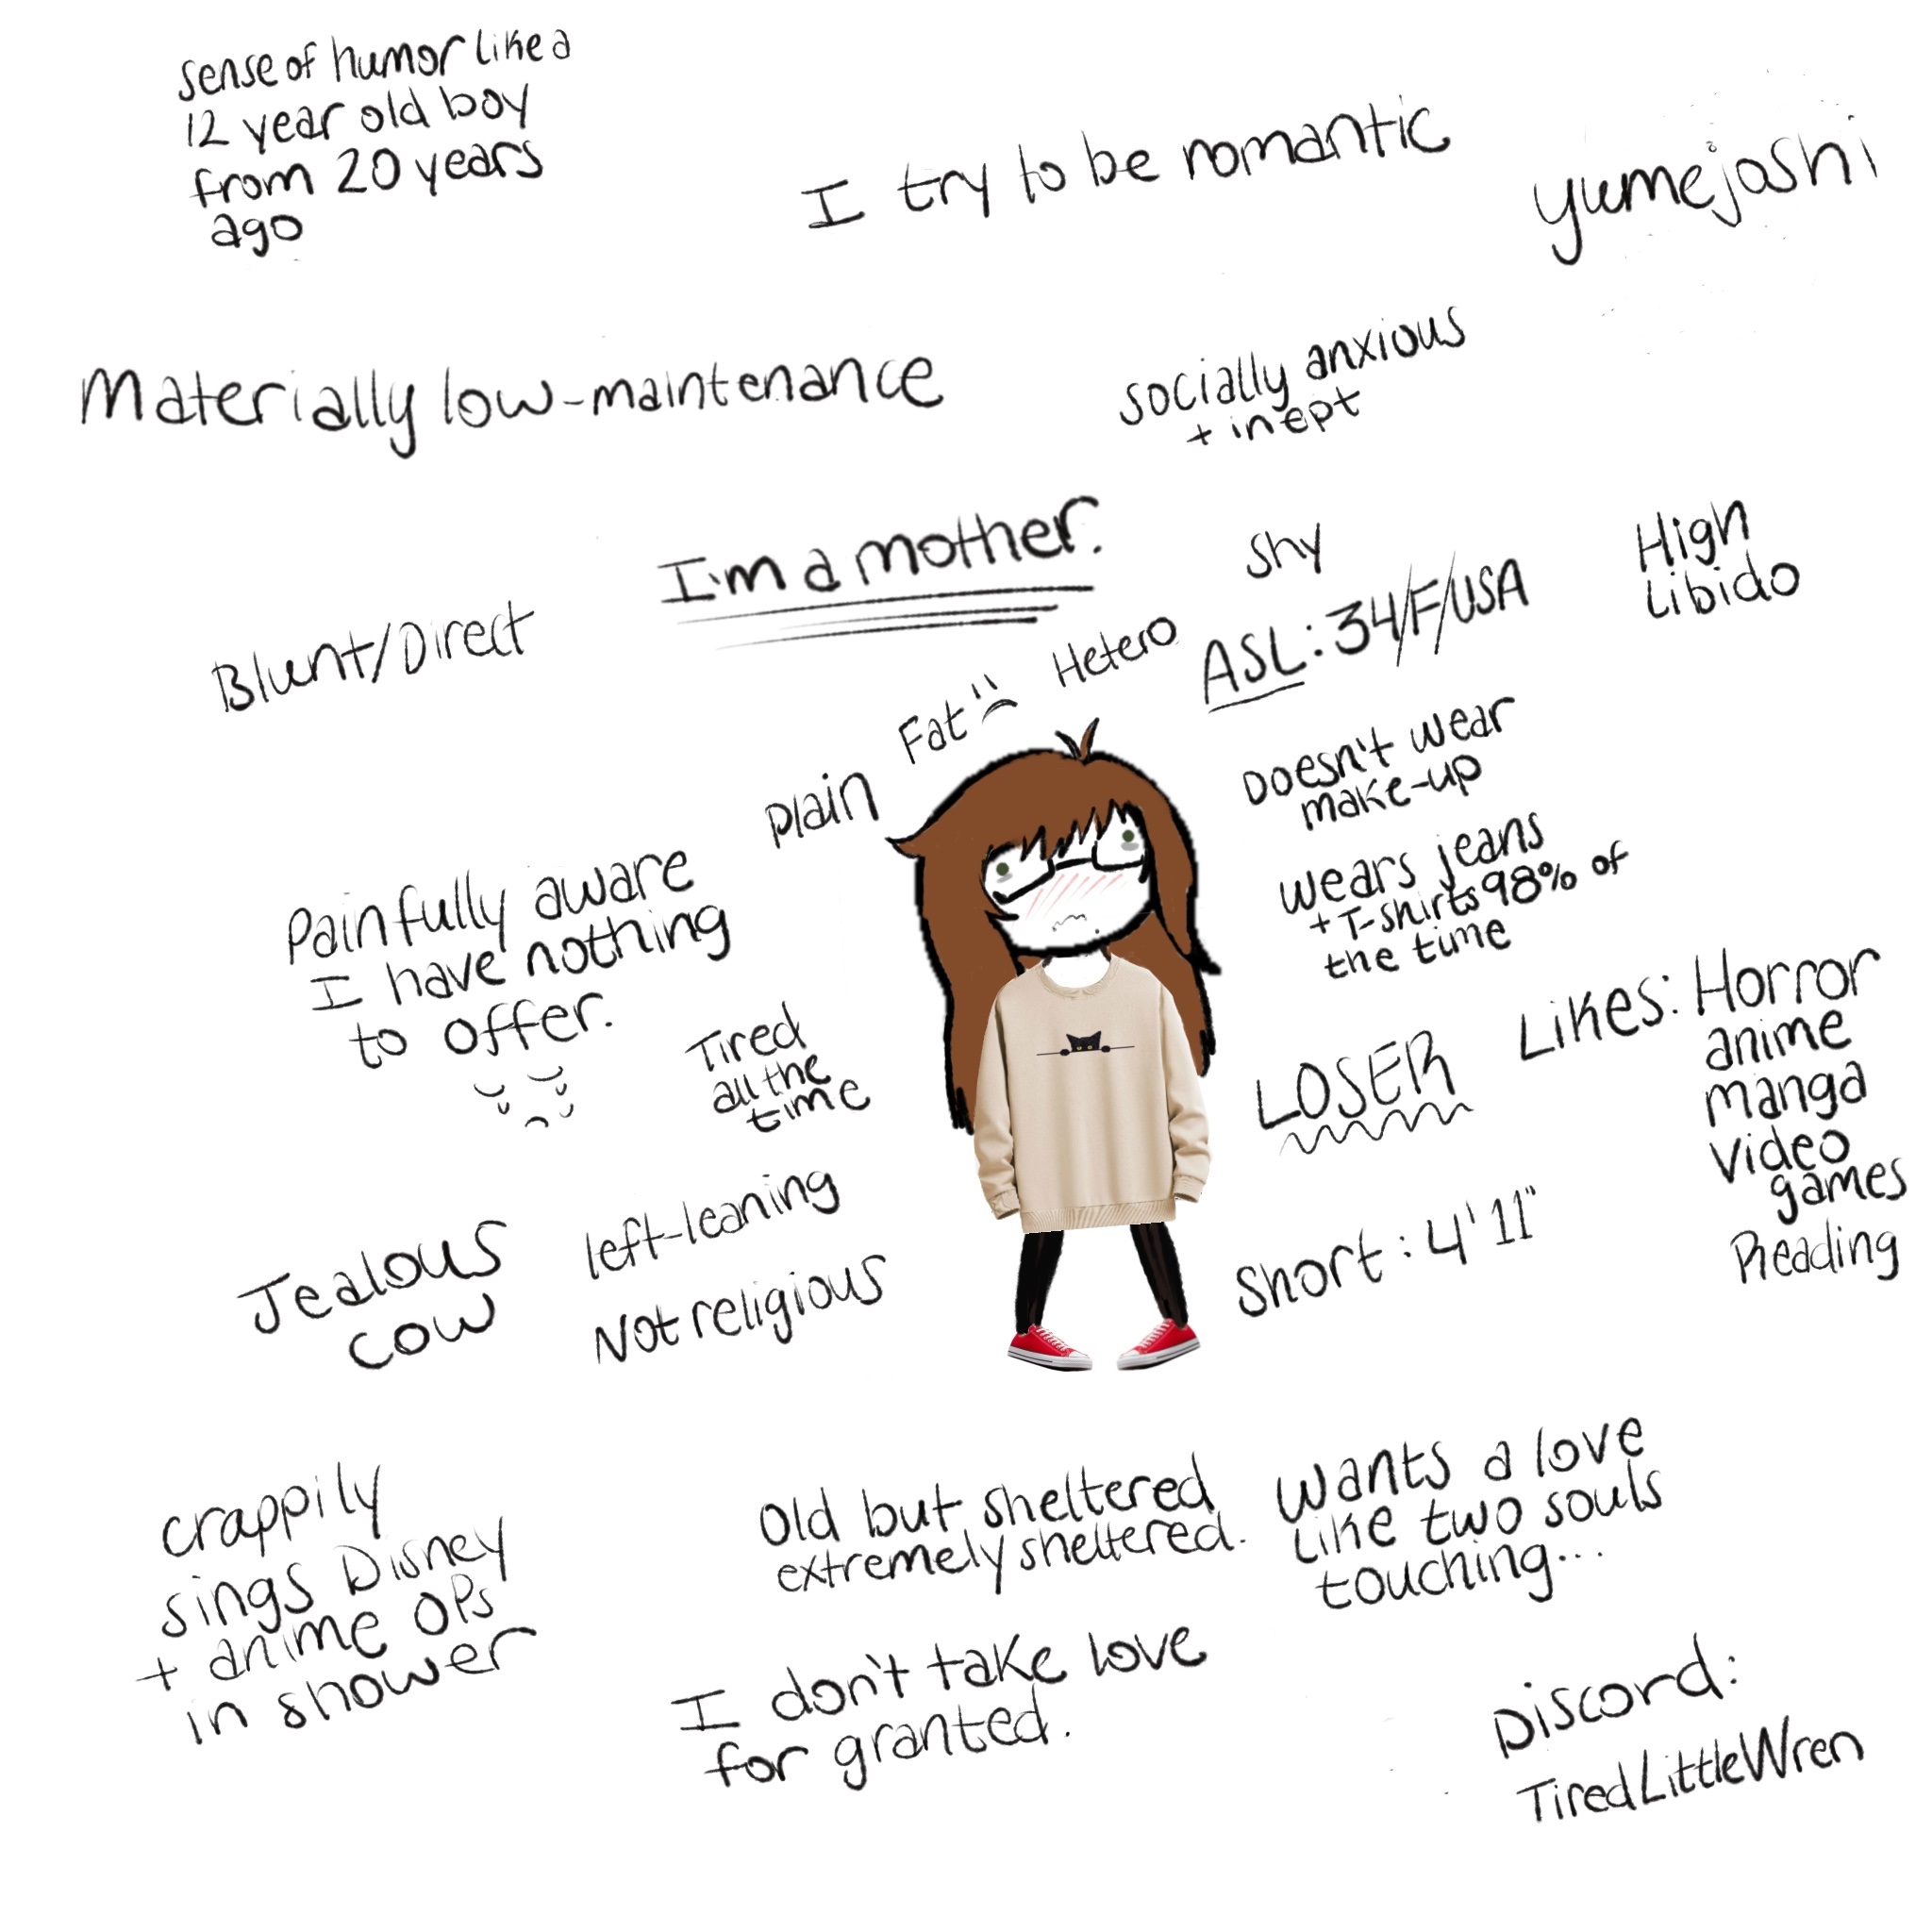 sense of humor like a
12 year old boy
from 20 years
ago
I try to be romantic
yumejoshi
Materially low-maintenance
socially anxious
+ inept
I'm a mother.
Shy
High
Libido
Blunt/Direct
Hetero
ASL: 34/F/USA
Fat
Plain
Doesn't wear
make-up
wears jeans
+ T-shirts 98% of
the time
Painfully aware
I have nothing
to offer.
Tired
all the
time
LOSER
Likes: Horror
anime
manga
video
games
Reading
Jealous
cow
left-leaning
Not religious
Short: 4'11"
crappily
sings Disney
+ anime OPs
in shower
Old but sheltered
extremely sheltered.
Wants a love
like two souls
touching...
I don't take love
for granted.
Discord:
TiredLittleWren